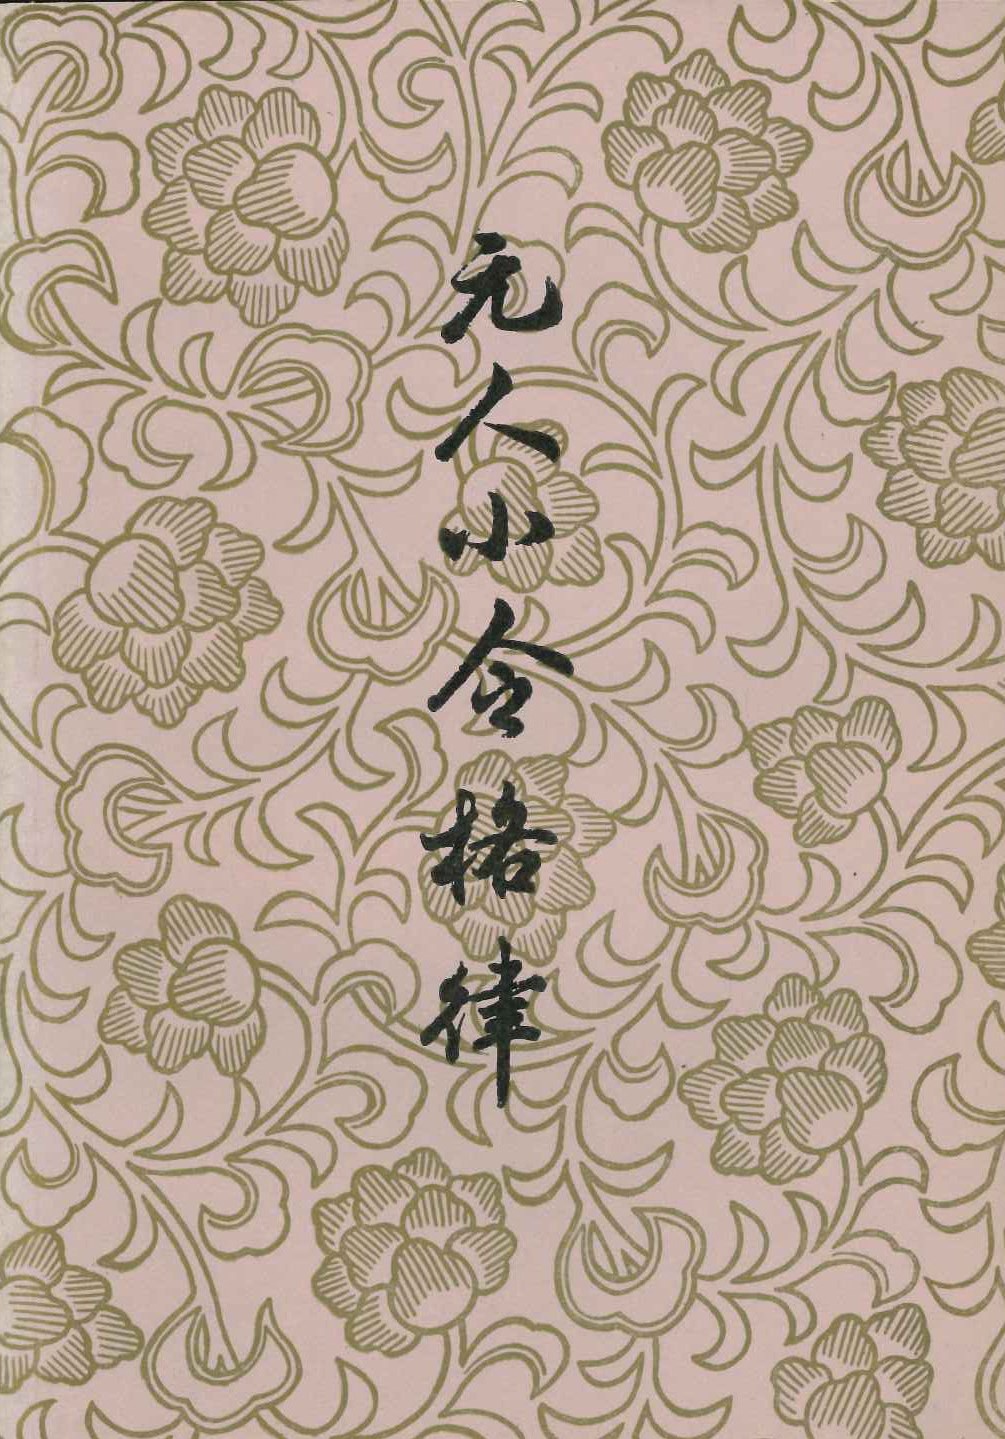 元人小令格律